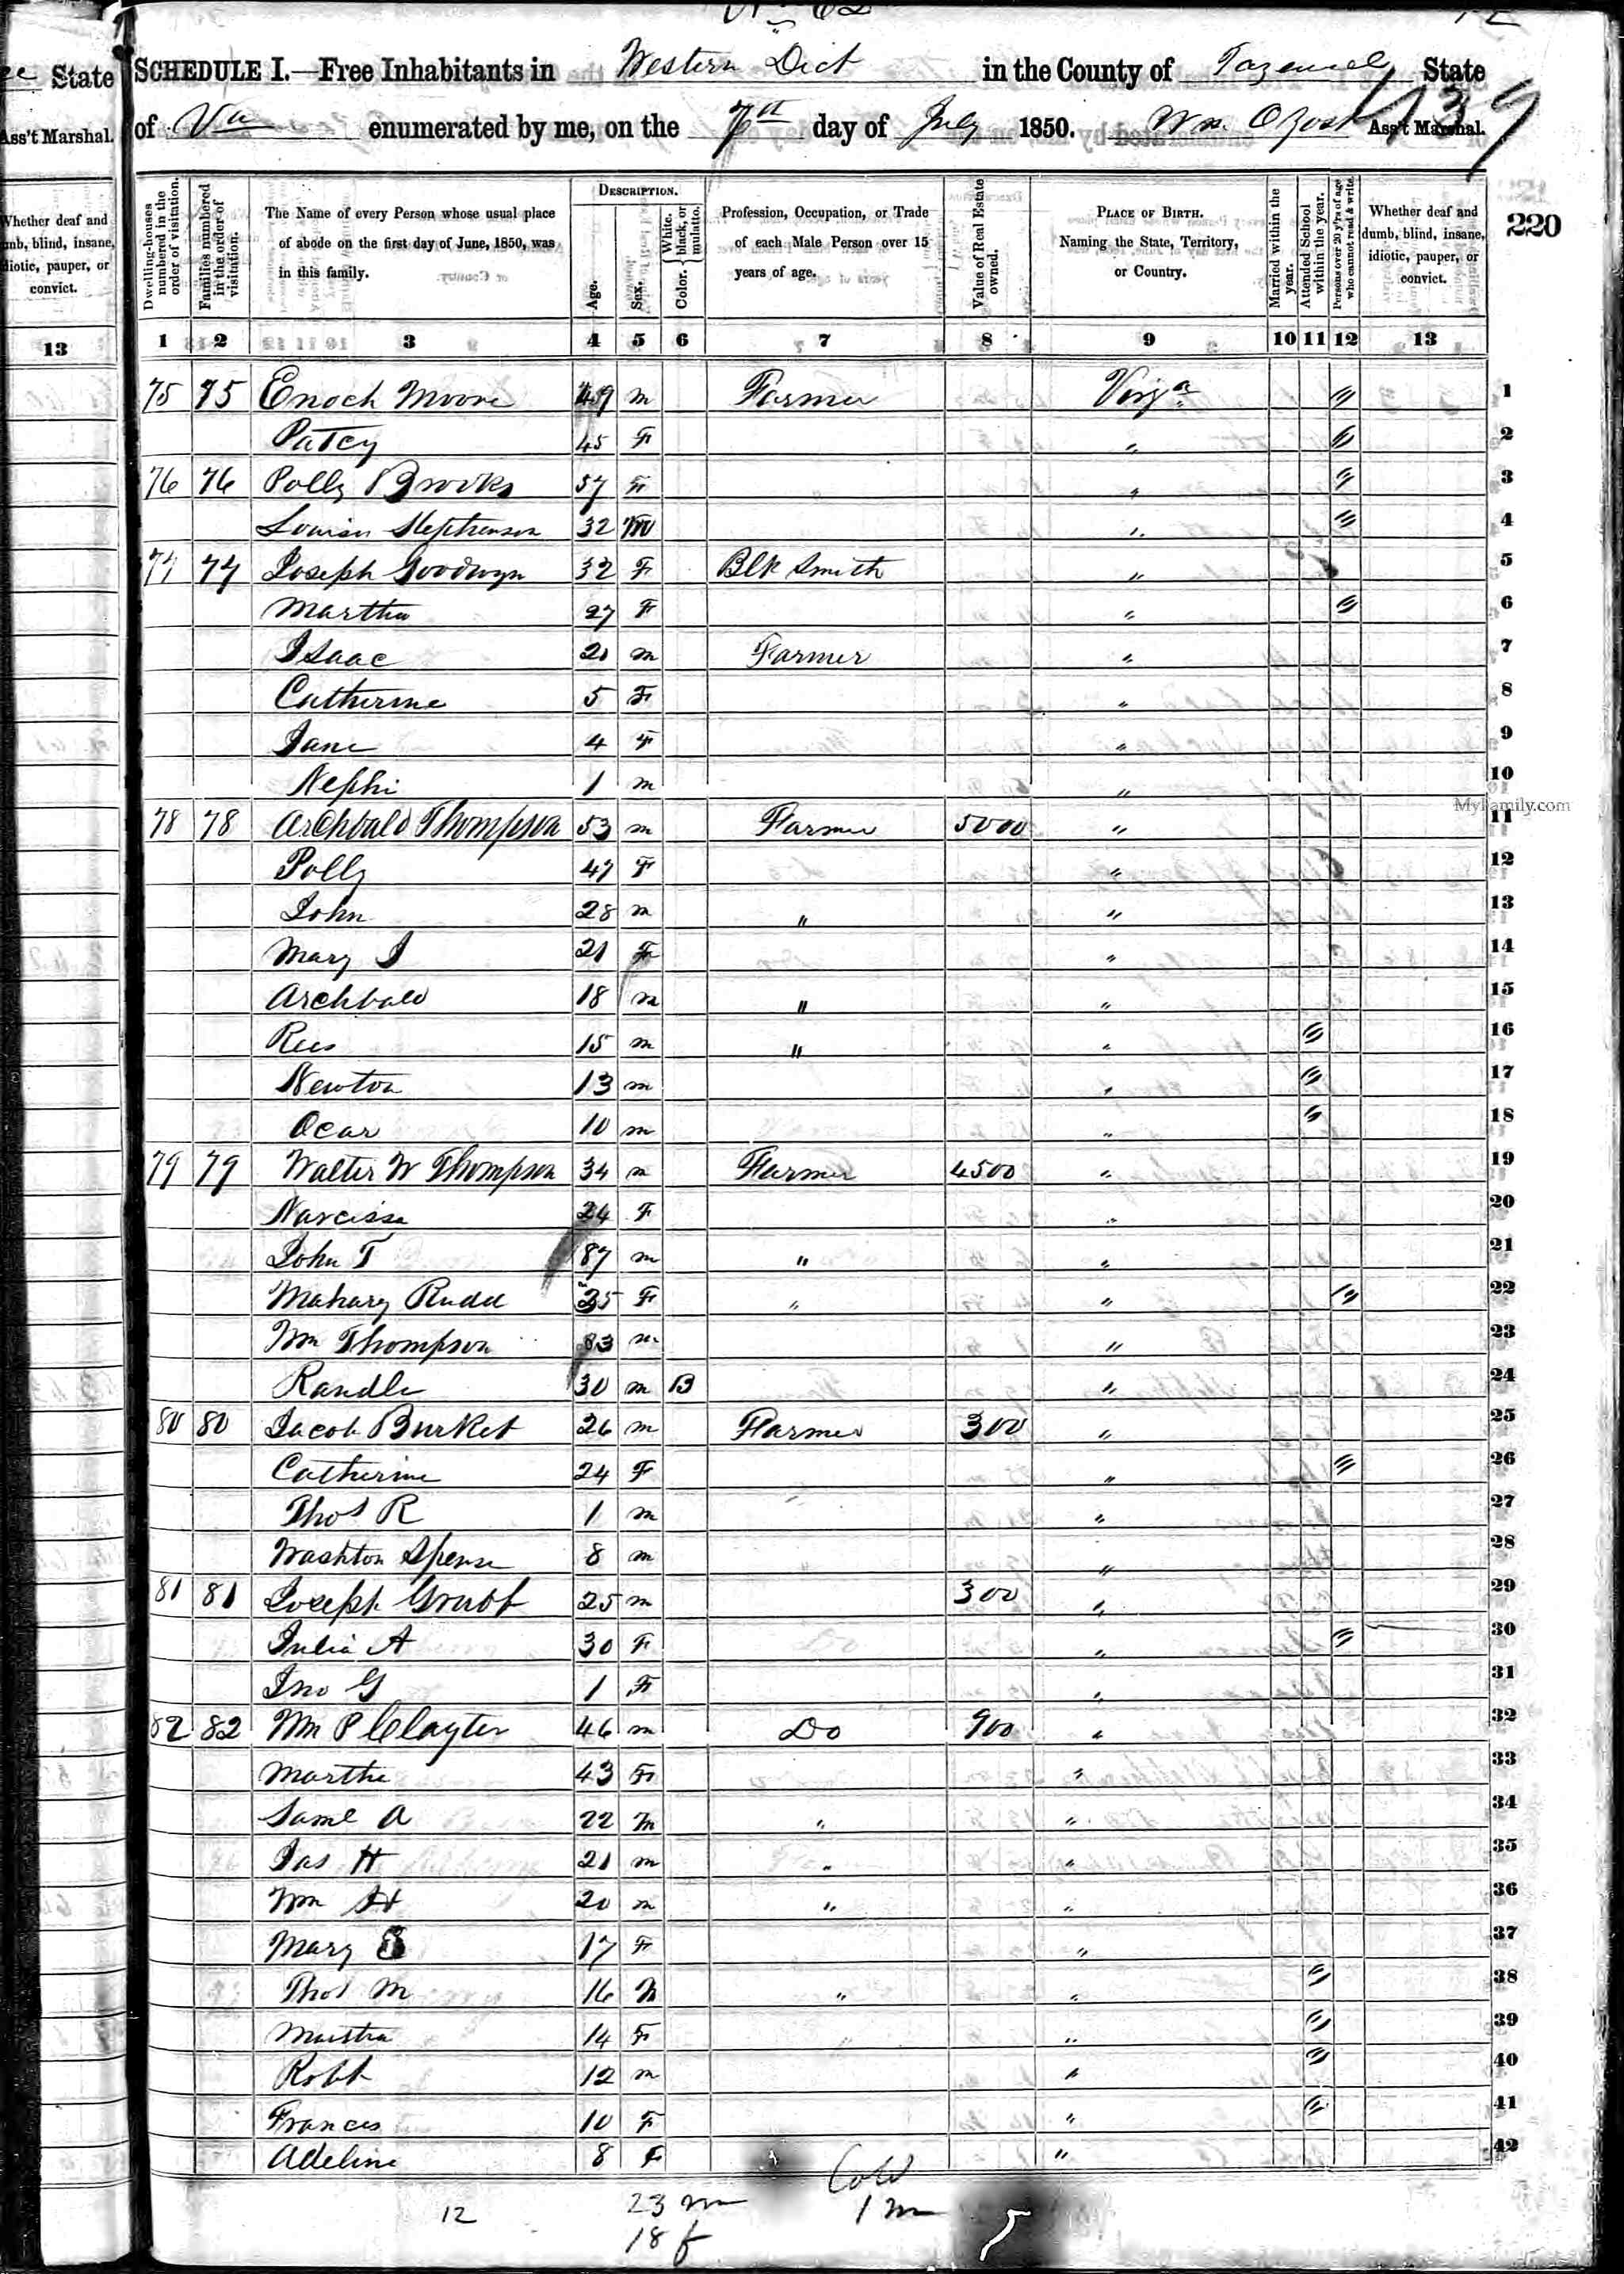 SCHEDULE I.—Free Inhabitants in Western Dict in the County of Tazewell State
of Va enumerated by me, on the 7th day of July 1850. Wm. O Yost Ass't Marshal.
439
220
State
Ass't Marshal.
Whether deaf and
dumb, blind, insane,
idiotic, pauper, or
convict.
13
Dwelling-houses numbered in the order of visitation.
Families numbered in the order of visitation.
The Name of every Person whose usual place of abode on the first day of June, 1850, was in this family.
DESCRIPTION.
Age.
Sex.
Color. { White, black, or mulatto.
Profession, Occupation, or Trade of each Male Person over 15 years of age.
Value of Real Estate owned.
PLACE OF BIRTH. Naming the State, Territory, or Country.
Married within the year.
Attended School within the year.
Persons over 20 y'rs of age who cannot read & write.
Whether deaf and dumb, blind, insane, idiotic, pauper, or convict.
1 2 3 4 5 6 7 8 9 10 11 12 13
75 75 Enoch Moore 49 m Farmer Virga 1
Patcy 45 F " 2
76 76 Polly Brooks 57 F " 3
Louisa Stephenson 32 " 4
77 77 Joseph Goodwyn 32 F Blk Smith " 5
Martha 27 F " 6
Isaac 21 m Farmer " 7
Catherine 5 F " 8
Jane 4 F " 9
Nephi 1 m " 10
78 78 Archbald Thompson 53 m Farmer 5000 " 11
Polly 47 F " 12
John 28 m " " 13
Mary J 21 F " 14
Archbald 18 m " " 15
Rees 15 m " " 16
Newton 13 m " 17
Ocar 10 m " 18
79 79 Walter W Thompson 34 m Farmer 4500 " 19
Narcissa 24 F " 20
John T 87 m " " 21
Mahary Rudd 25 F " " 22
Wm Thompson 83 m " 23
Randle 30 m B " 24
80 80 Jacob Burket 26 m Farmer 300 " 25
Catherine 24 F " 26
Thos R 1 m " 27
Washton Spense 8 m " 28
81 81 Joseph Grubb 25 m 300 " 29
Julia A 30 F " 30
Jno G 1 F " 31
82 82 Wm P Clayter 46 m Do 900 " 32
Martha 43 F " 33
Saml A 22 m " " 34
Jas H 21 m " " 35
Wm H 20 m " " 36
Mary 17 F " 37
Thos M 16 m " " 38
14 F " 39
Robt 12 m " 40
Frances 10 F " 41
Adeline 8 F " 42
12
23 m
18 f
Cold
1 m
5
MyFamily.com